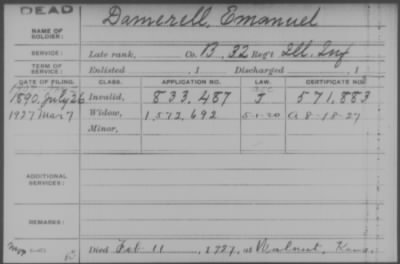 DEAD
NAME OF SOLDIER: Damerell, Emanuel
SERVICE: Late rank, Co. B, 32 Reg't Ill. Inf
TERM OF SERVICE: Enlisted , 1 Discharged , 1
DATE OF FILING. CLASS. APPLICATION NO. LAW. CERTIFICATE NO.
1890, July 26 Invalid, 833,487 J 571,883
1927 Mar 7 Widow, 1,572,692 5-1-20 A 8-18-27
Minor,
ADDITIONAL SERVICES:
REMARKS:
Died Feb 11, 1927, at Walnut, Kans.